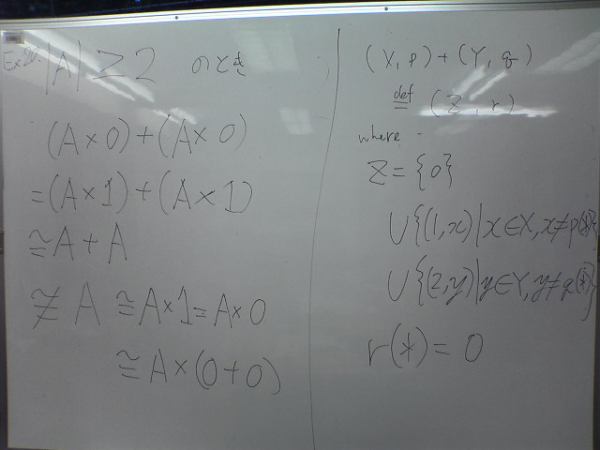 |A| ≥ 2 のとき
(A×0)+(A×0)
=(A×1)+(A×1)
≅A+A
≇ A ≅A×1=A×0
≅A×(0+0)
(X,p)+(Y,q)
def
= (Z,r)
where
Z={0}
∪{(1,x)|x∈X,x≠p(*)}
∪{(2,y)|y∈Y,y≠q(*)}
r(*)=0